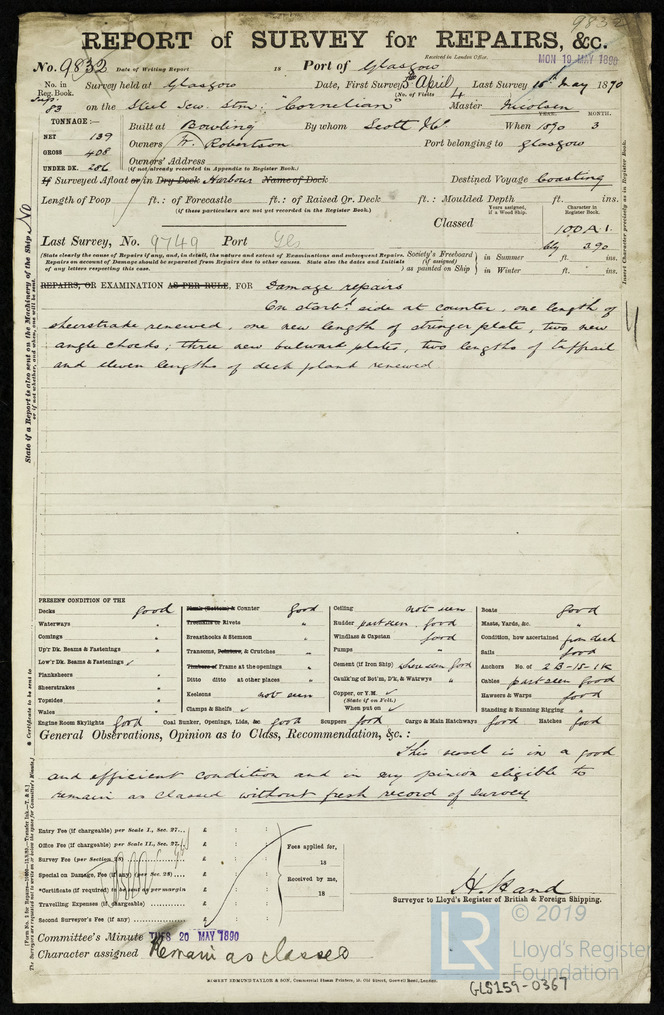 9832
REPORT of SURVEY for REPAIRS, &c.
Received in London Office.
No. 9832 Date of Writing Report 18 Port of Glasgow MON 19 MAY 1890
No. in Reg. Book. Survey held at Glasgow Date, First Survey 3rd April Last Survey 16th May 1890
(No. of Visits 4
83 on the Steel Scw. Stmr: "Cornelian" Master Nicolson
TONNAGE:— YEAR. MONTH.
NET 139 Built at Bowling By whom Scott & Co. When 1890 3
GROSS 408 Owners T. Robertson Port belonging to Glasgow
UNDER DK. 286 Owners' Address
(if not already recorded in Appendix to Register Book.)
If Surveyed Afloat or/in Dry Dock Harbour Name of Dock Destined Voyage Coasting
Length of Poop ft.: of Forecastle ft.: of Raised Qr. Deck ft.: Moulded Depth ft. ins.
(if these particulars are not yet recorded in the Register Book.)
Years assigned, if a Wood Ship. Character in Register Book.
Classed 100 A 1.
3.90
Last Survey, No. 9749 Port Gls
(State clearly the cause of Repairs if any, and, in detail, the nature and extent of Examinations and subsequent Repairs.
Repairs on account of Damage should be separated from Repairs due to other causes. State also the dates and initials
of any letters respecting this case.
Society's Freeboard (if assigned) as painted on Ship } in Summer ft. ins.
in Winter ft. ins.
REPAIRS, OR EXAMINATION AS PER RULE, FOR Damage repairs
On starbd. side at counter, one length of
sheerstrake renewed, one new length of stringer plate, two new
angle chocks; three new bulwark plates, two lengths of taffrail
and eleven lengths of deck plank renewed
PRESENT CONDITION OF THE
Decks good
Waterways "
Comings "
Up'r Dk. Beams & Fastenings "
Low'r Dk. Beams & Fastenings ✓
Planksheers "
Sheerstrakes "
Topsides "
Wales "
Plank (Bottom) & Counter good
Treenails or Rivets "
Breasthooks & Stemson "
Transoms, Pointers, & Crutches "
Timbers or Frame at the openings "
Ditto ditto at other places "
Keelsons not seen
Clamps & Shelfs ✓
Ceiling not seen
Rudder part seen good
Windlass & Capstan good
Pumps "
Cement (if Iron Ship) where seen good
Caulk'ng of Bot'm, D'k, & Watrwys "
Copper, or Y.M. ✓
(State if on Felt.)
When put on ✓
Boats good
Masts, Yards, &c. "
Condition, how ascertained from deck
Sails good
Anchors No. of 2B-1S-1K
Cables part seen good
Hawsers & Warps good
Standing & Running Rigging "
Engine Room Skylights good Coal Bunker, Openings, Lids, &c. good Scuppers good Cargo & Main Hatchways good Hatches good
General Observations, Opinion as to Class, Recommendation, &c.:
This vessel is in a good
and efficient condition and in my opinion eligible to
remain as classed without fresh record of survey
Entry Fee (if chargeable) per Scale I., Sec. 27... £ : :
Office Fee (if chargeable) per Scale II., Sec. 27. £ : :
Survey Fee (per Section 28) £ : :
Special on Damage, Fee (if any) (per Sec. 28) £ : :
*Certificate (if required) to be sent as per margin £ : :
Travelling Expenses (if chargeable) £ : :
Second Surveyor's Fee (if any) £ : :
Fees applied for,
18
Received by me,
18
H. Hand
Surveyor to Lloyd's Register of British & Foreign Shipping.
Committee's Minute TUES 20 MAY 1890
Character assigned Remain as classed
ROBERT EDMUND TAYLOR & SON, Commercial Steam Printers, 19, Old Street, Goswell Road, London.
State if a Report is also sent on the Machinery of the Ship NO
or if not whether, and when, one will be sent.
* Certificate to be sent to
Insert Character precisely as in Register Book.
LR
© 2019
Lloyd's Register
Foundation
GLS159-0367